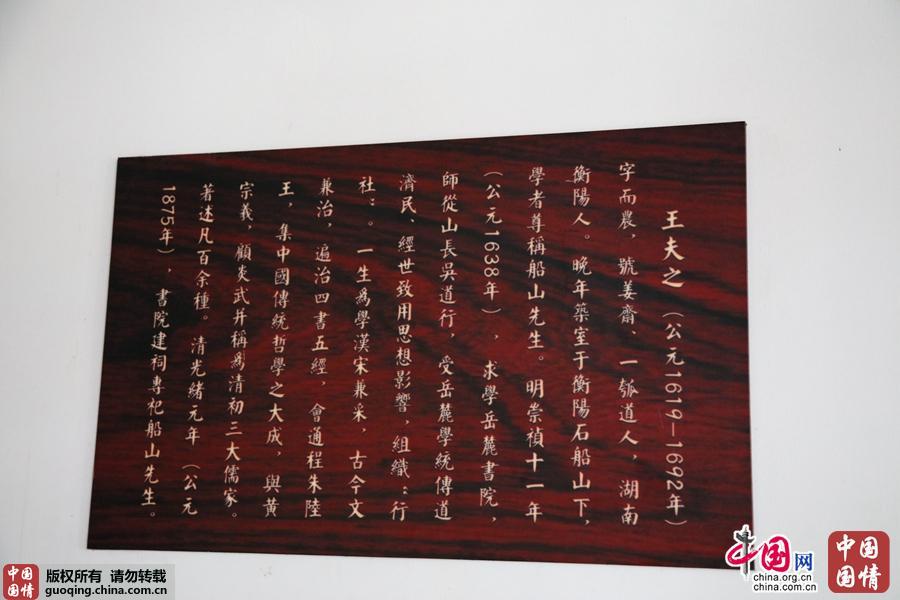 王夫之（公元1619—1692年）
字而農，號姜齋，一瓠道人，湖南
衡陽人。晚年築室于衡陽石船山下，
學者尊稱船山先生。明崇禎十一年
（公元1638年），求學岳麓書院，
師從山長吳道行，受岳麓學統傳道
濟民、經世致用思想影響，組織“行
社”。一生爲學漢宋兼采，古今文
兼治，遍治四書五經，會通程朱陸
王，集中國傳統哲學之大成，與黃
宗羲，顧炎武并稱爲清初三大儒家。
著述凡百余種。清光緒元年（公元
1875年），書院建祠專祀船山先生。
中国国情
版权所有 请勿转载
guoqing.china.com.cn
中国网
china.org.cn
china.com.cn
中国国情